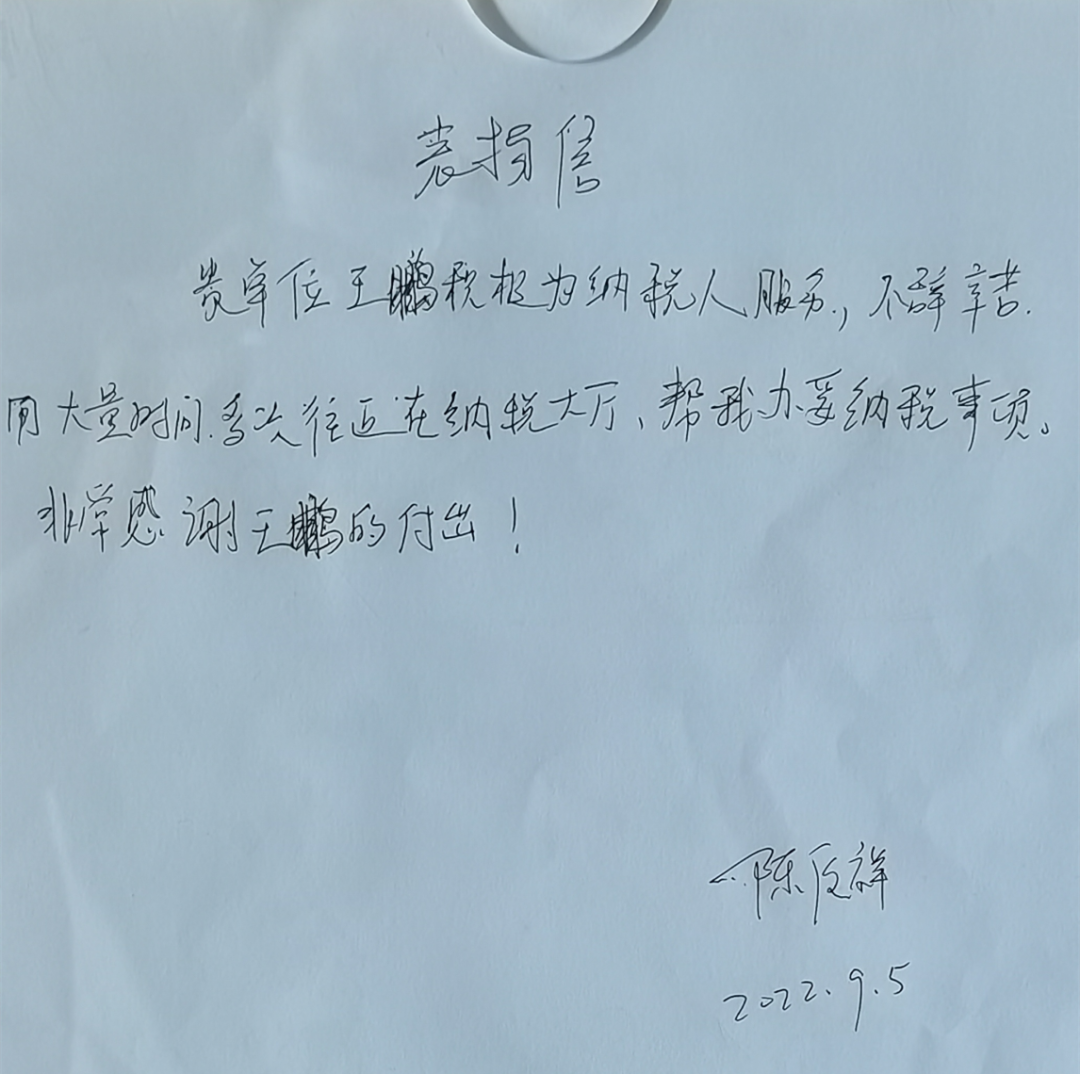 表扬信
贵单位王鹏积极为纳税人服务,不辞辛苦.
用大量时间.多次往返在纳税大厅、帮我办妥纳税事项。
非常感谢王鹏的付出!
陈反祥
2022.9.5